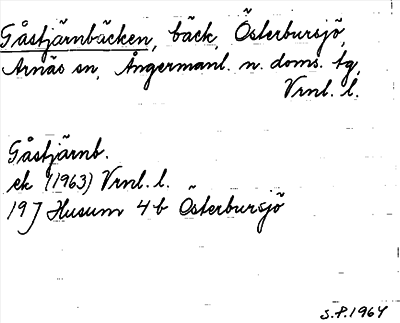 Gåstjärnbäcken, bäck, Österbursjö,
Arnäs sn, Ångermanl. n. doms. tg,
Vrnl. l.
Gåstjärnb.
ek (1963) Vrnl. l.
19 J Husum 4 b Österbursjö
S.P. 1964